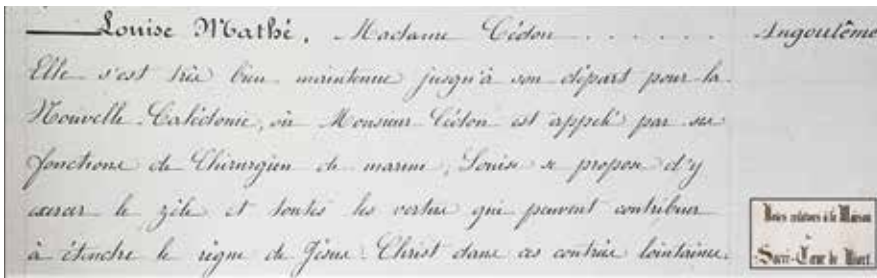 Louise Mathé, Madame Cédon . . . . . . Angoulême
Elle s'est très bien maintenue jusqu'à son départ pour la
Nouvelle-Calédonie, où Monsieur Cédon est appelé par ses
fonctions de Chirurgien de marine; Louise se propose d'y
exercer le zèle et toutes les vertus qui peuvent contribuer
à étendre le règne de Jésus-Christ dans ces contrées lointaines.
Notes relatives à la Maison
du
Sacré-Cœur de Niort.